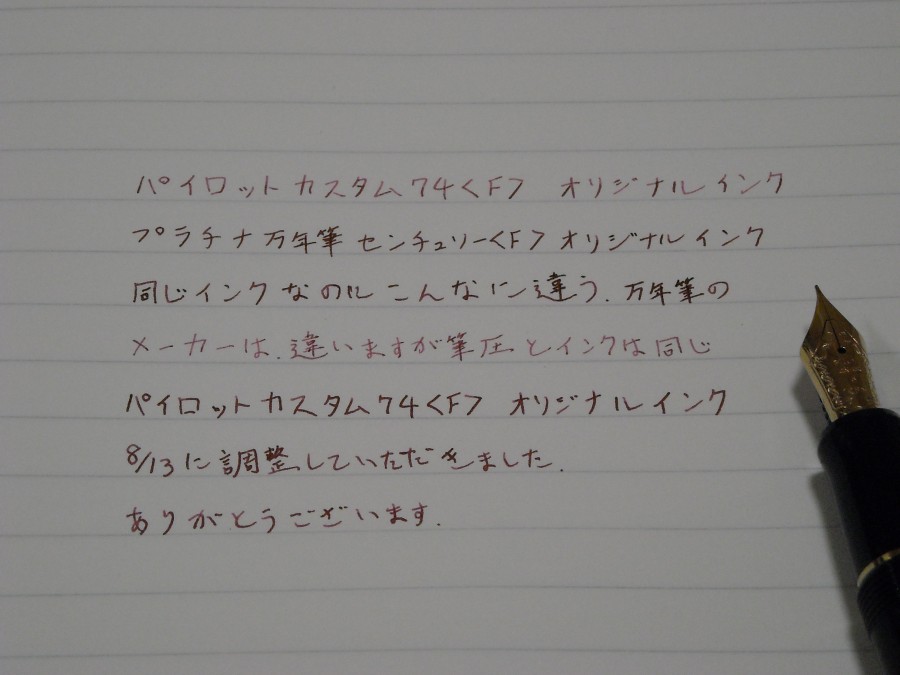 パイロットカスタム74<F> オリジナルインク
プラチナ万年筆 センチュリー<F> オリジナルインク
同じインクなのに こんなに違う. 万年筆の
メーカーは.違いますが筆圧とインクは同じ
パイロットカスタム74<F> オリジナルインク
8/13に調整していただきました.
ありがとうございます.